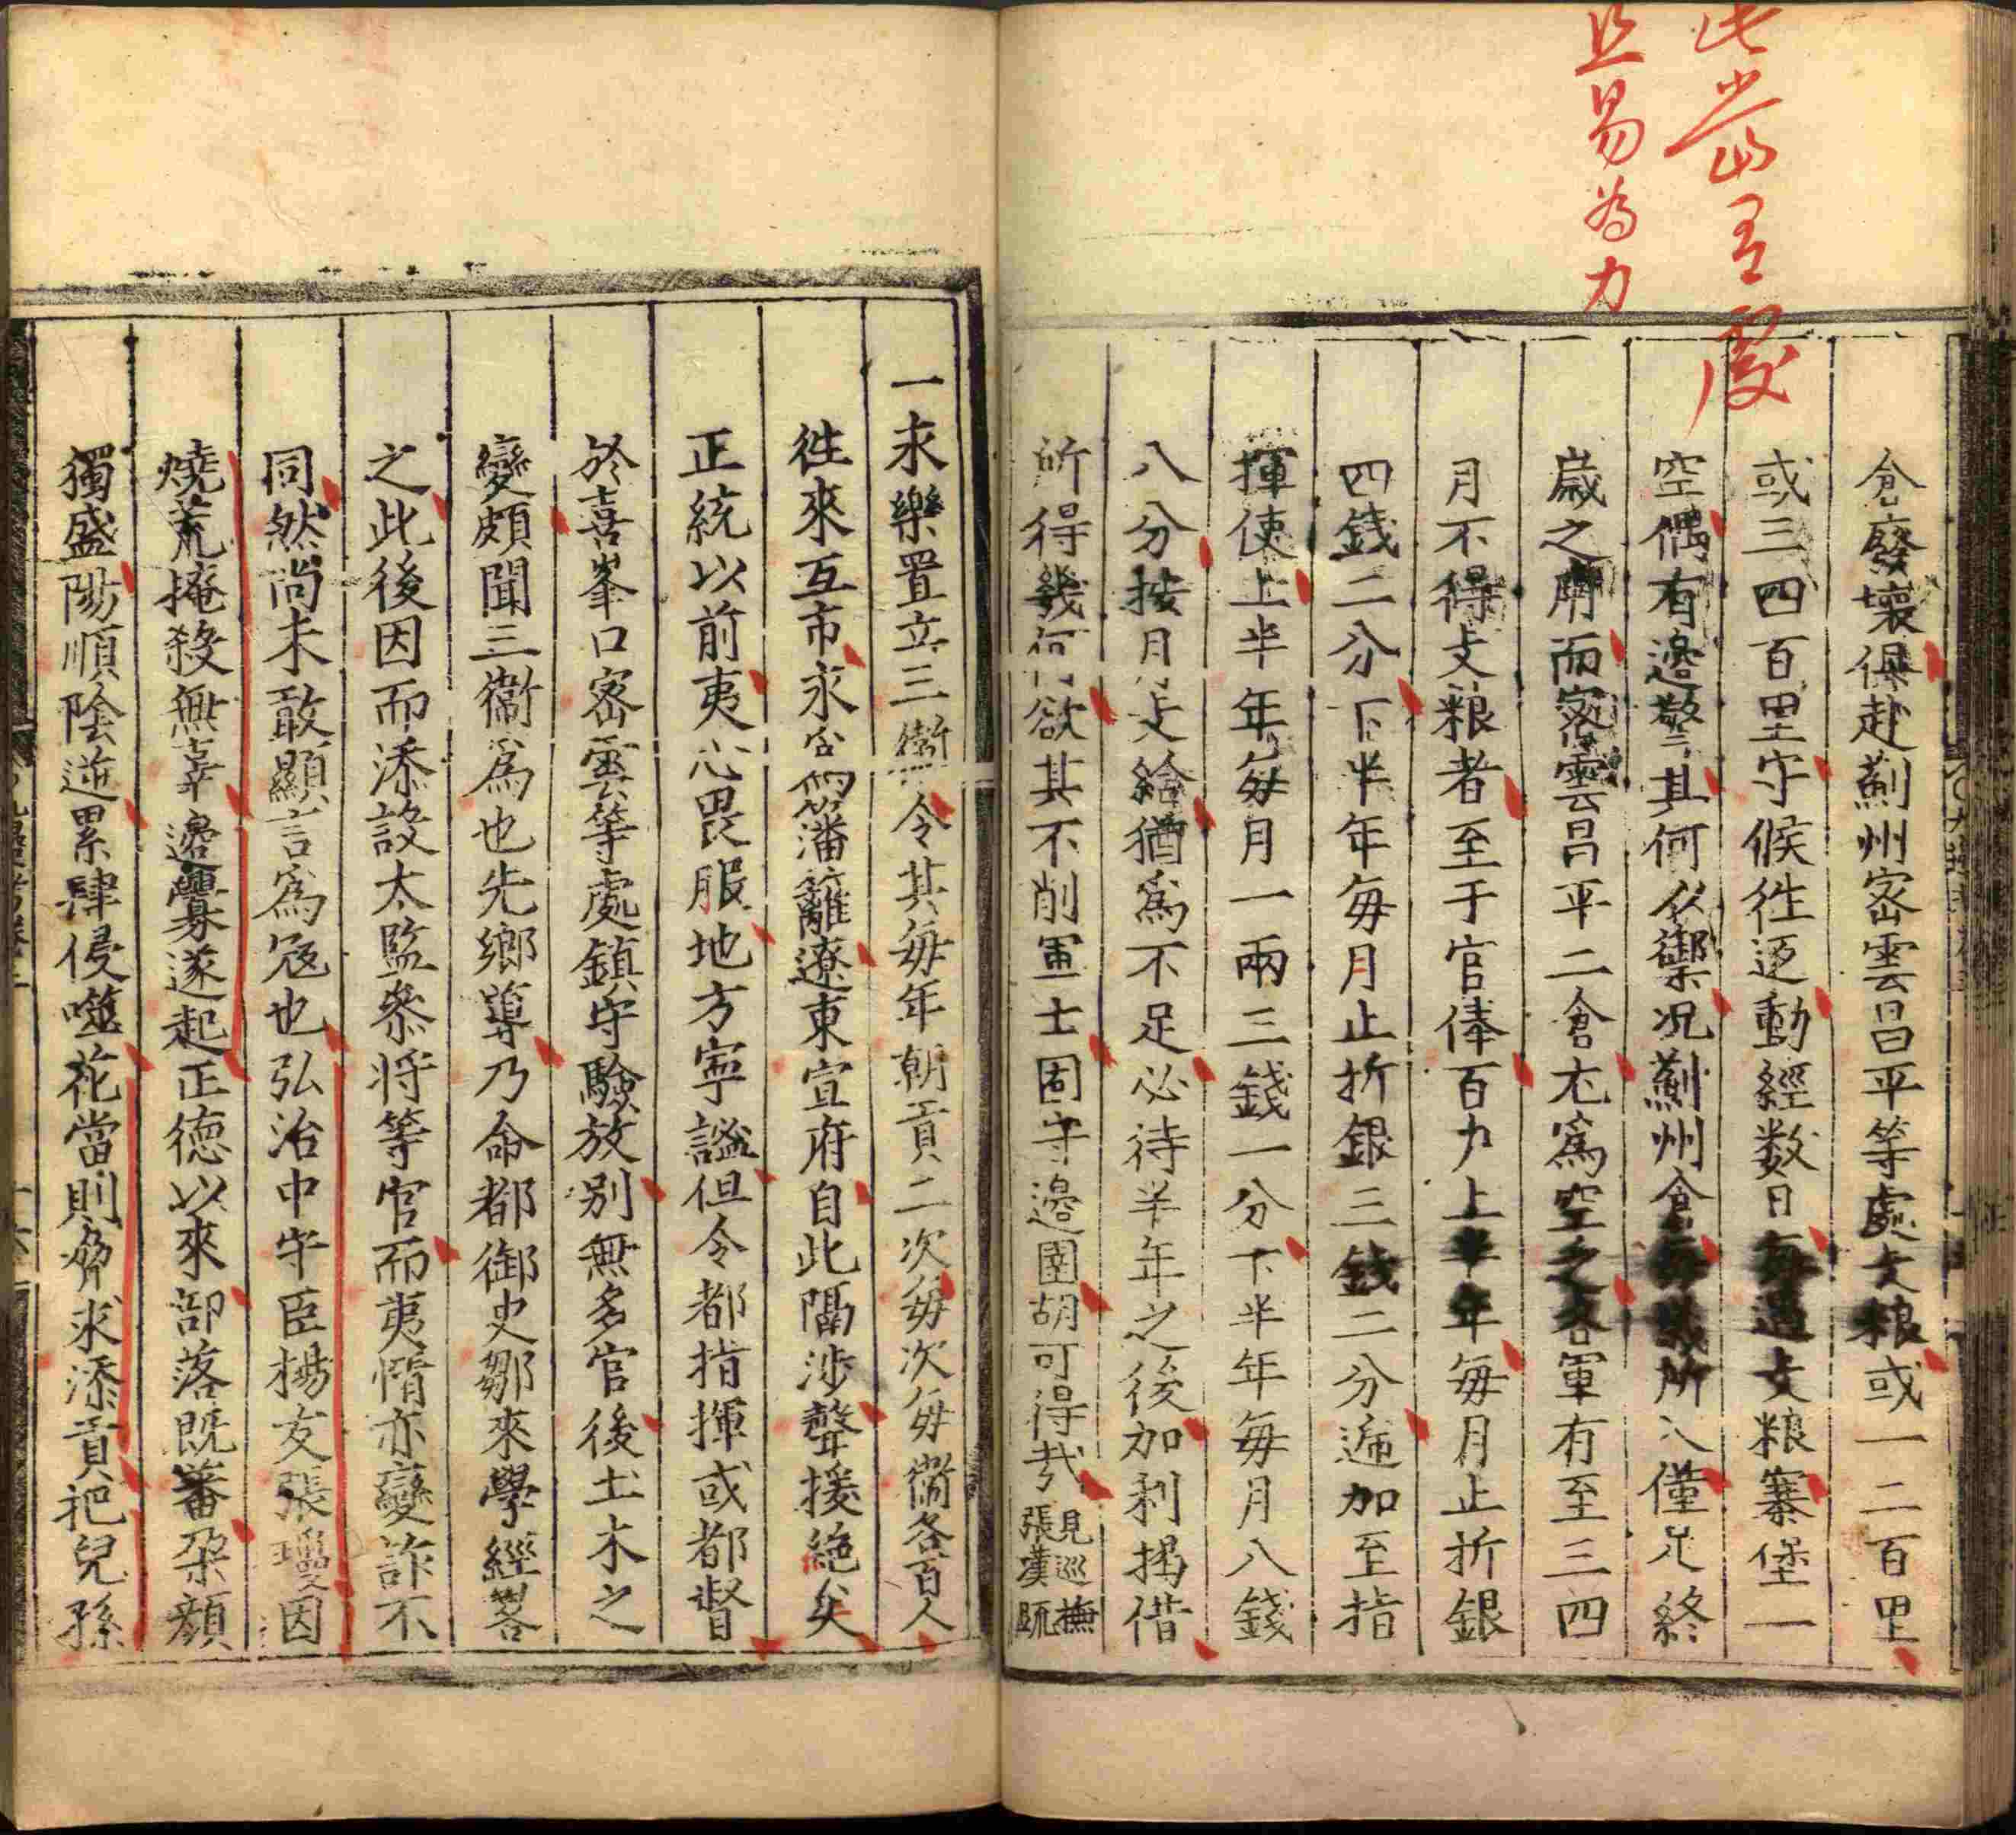 此當
且易為力
倉廢壞俱赴薊州密雲昌平等處支粮或一二百里
或三四百里守候徃返動經数日每遇支粮寨堡一
空偶有邊警其何以禦况薊州倉每歲所入僅足終
歲之用而密雲昌平二倉尤為空乏各軍有至三四
月不得支粮者至于官俸百戶上半年每月止折銀
四錢二分下半年每月止折銀三錢二分遞加至指
揮使上半年每月一兩三錢一分下半年每月八錢
八分按月支給猶為不足必待半年之後加利揭借
所得幾何欲其不削軍士固守邊圉胡可得哉見巡撫張漢疏
一永樂置立三衛令其每年朝貢二次每次每衛各百人
徃來互市永為藩籬遼東宣府自此隔涉聲援絕矣
正統以前夷心畏服地方寧謐但令都指揮或都督
於喜峯口密雲等處鎮守驗放别無多官後土木之
變頗聞三衛為也先鄉導乃命都御史鄒來學經畧
之此後因而添設太監叅将等官而夷情亦變詐不
同然尚未敢顯言為冦也弘治中守臣楊友張瓊因
燒荒掩殺無辜邊釁遂起正德以來部落既蕃朶顔
獨盛陽順陰逆累肆侵噬花當則脅求添貢把兒孫